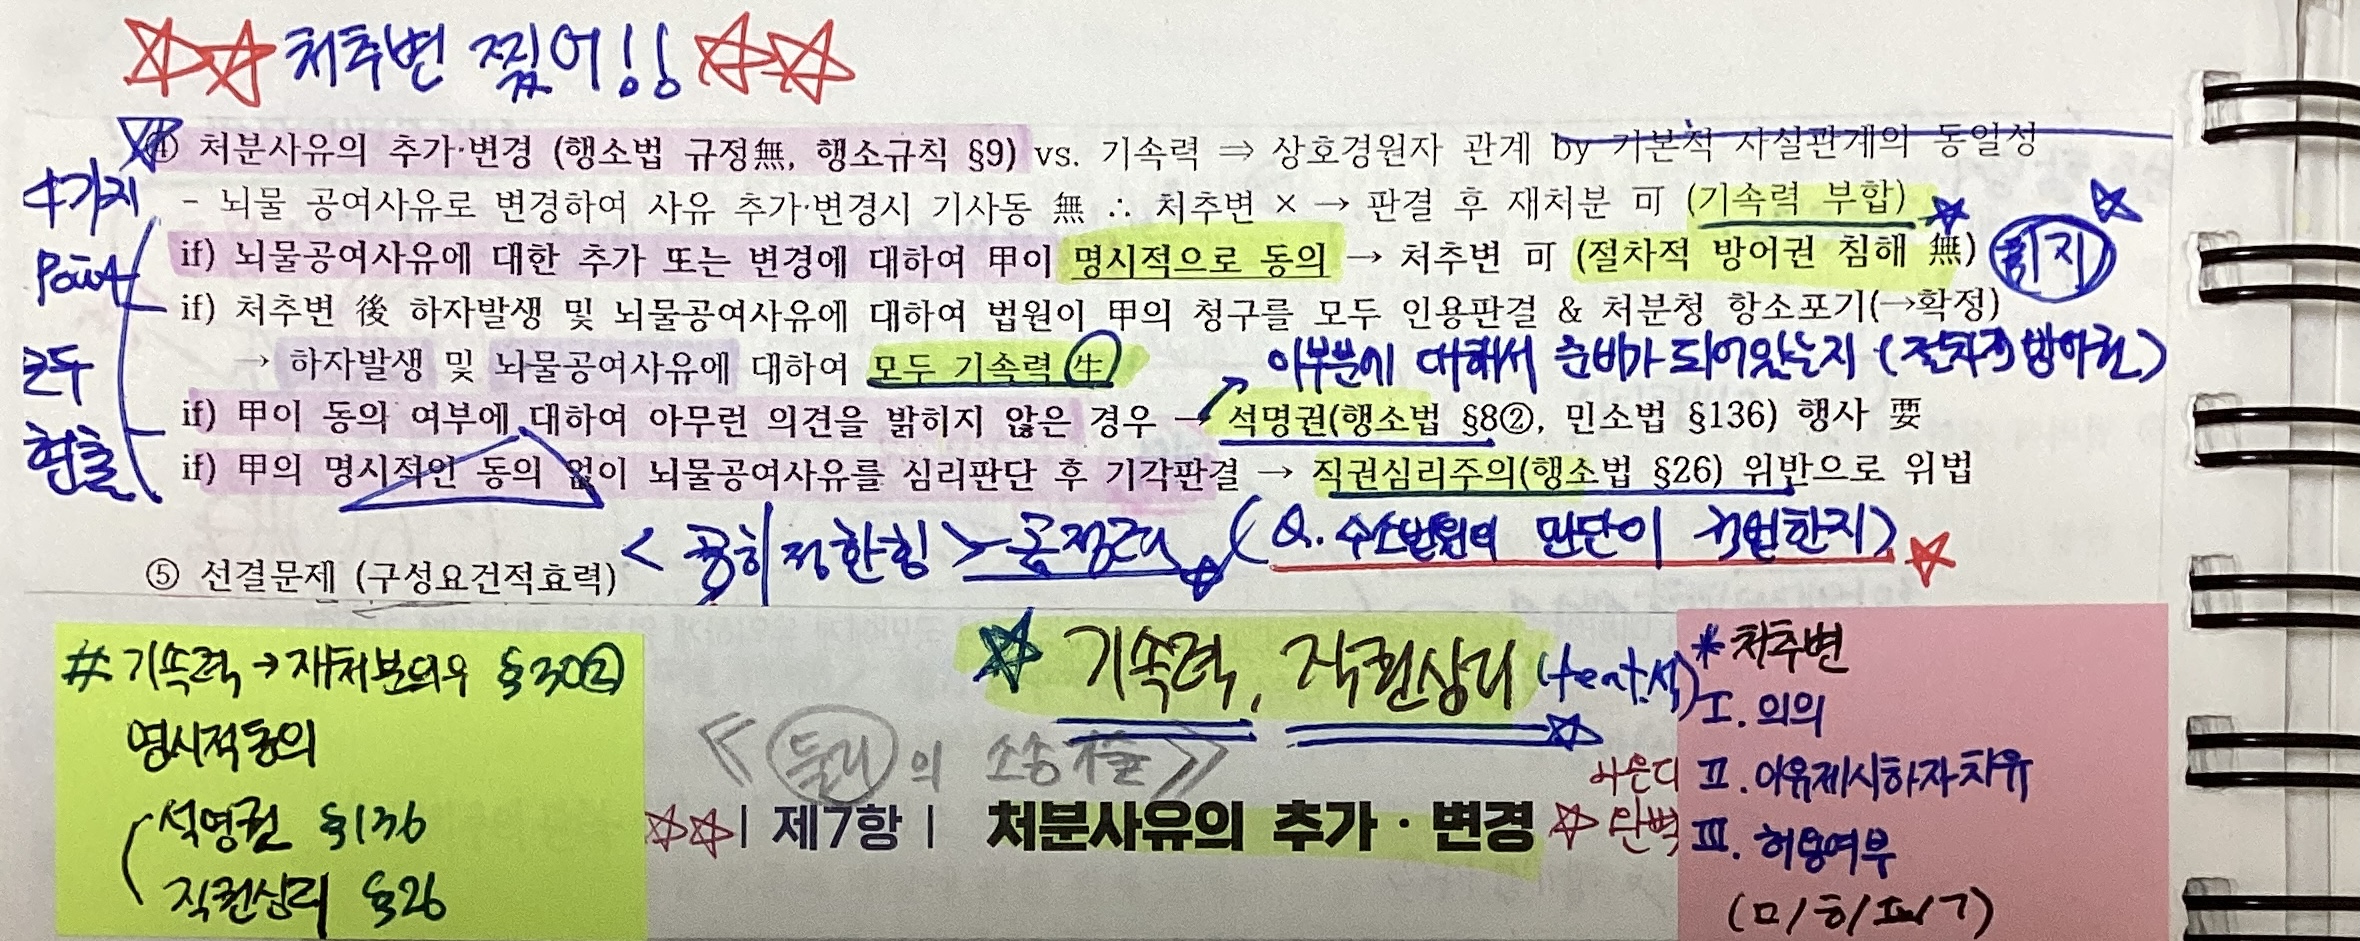 처추변 찢어!!
④ 처분사유의 추가·변경 (행소법 규정無, 행소규칙 §9) vs. 기속력 ⇒ 상호경원자 관계 by 기본적 사실관계의 동일성
4가지
Point
모두
현출
- 뇌물 공여사유로 변경하여 사유 추가·변경시 기사동 無 ∴ 처추변 × → 판결 후 재처분 可 (기속력 부합)
if) 뇌물공여사유에 대한 추가 또는 변경에 대하여 甲이 명시적으로 동의 → 처추변 可 (절차적 방어권 침해 無)
if) 처추변 後 하자발생 및 뇌물공여사유에 대하여 법원이 甲의 청구를 모두 인용판결 & 처분청 항소포기(→확정)
→ 하자발생 및 뇌물공여사유에 대하여 모두 기속력 生
이부분에 대해서 준비가 되어있는지 (절차적 방어권)
if) 甲이 동의 여부에 대하여 아무런 의견을 밝히지 않은 경우 → 석명권(행소법 §8②, 민소법 §136) 행사 要
if) 甲의 명시적인 동의 없이 뇌물공여사유를 심리판단 후 기각판결 → 직권심리주의(행소법 §26) 위반으로 위법
(Q. 수소법원의 판단이 적법한지)
<공히 정한힘> 공정력
⑤ 선결문제 (구성요건적효력)
# 기속력 → 재처분의무 §30②
명시적동의
석명권 §136
직권심리 §26
기속력, 직권심리
《둘리의 소송개출》
| 제7항 | 처분사유의 추가 · 변경
* 처추변
I. 의의
II. 이유제시하자치유
III. 허용여부